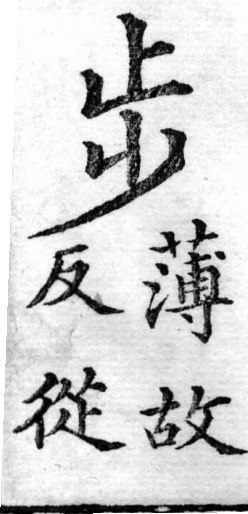 步
薄故
反從